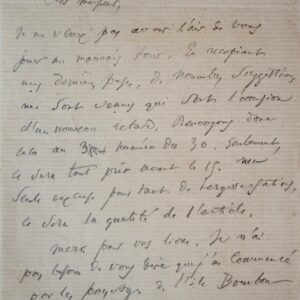 Je ne veux pas avoir l'air de vous
jouer un mauvais tour. En recopiant
mes dernières pages, de nouvelles suggestions
me sont venues qui sont l'occasion
d'un nouveau retard. Renvoyons donc
cela au numéro du 30. Seulement,
ce sera tout prêt avant le 15. Mon
seule excuse pour tant de tergiversations,
ce sera la qualité de l'article.
Merci pour vos lions. Je n'ai
pas besoin de vous dire que j'ai commencé
par les paysages de l'île Bourbon